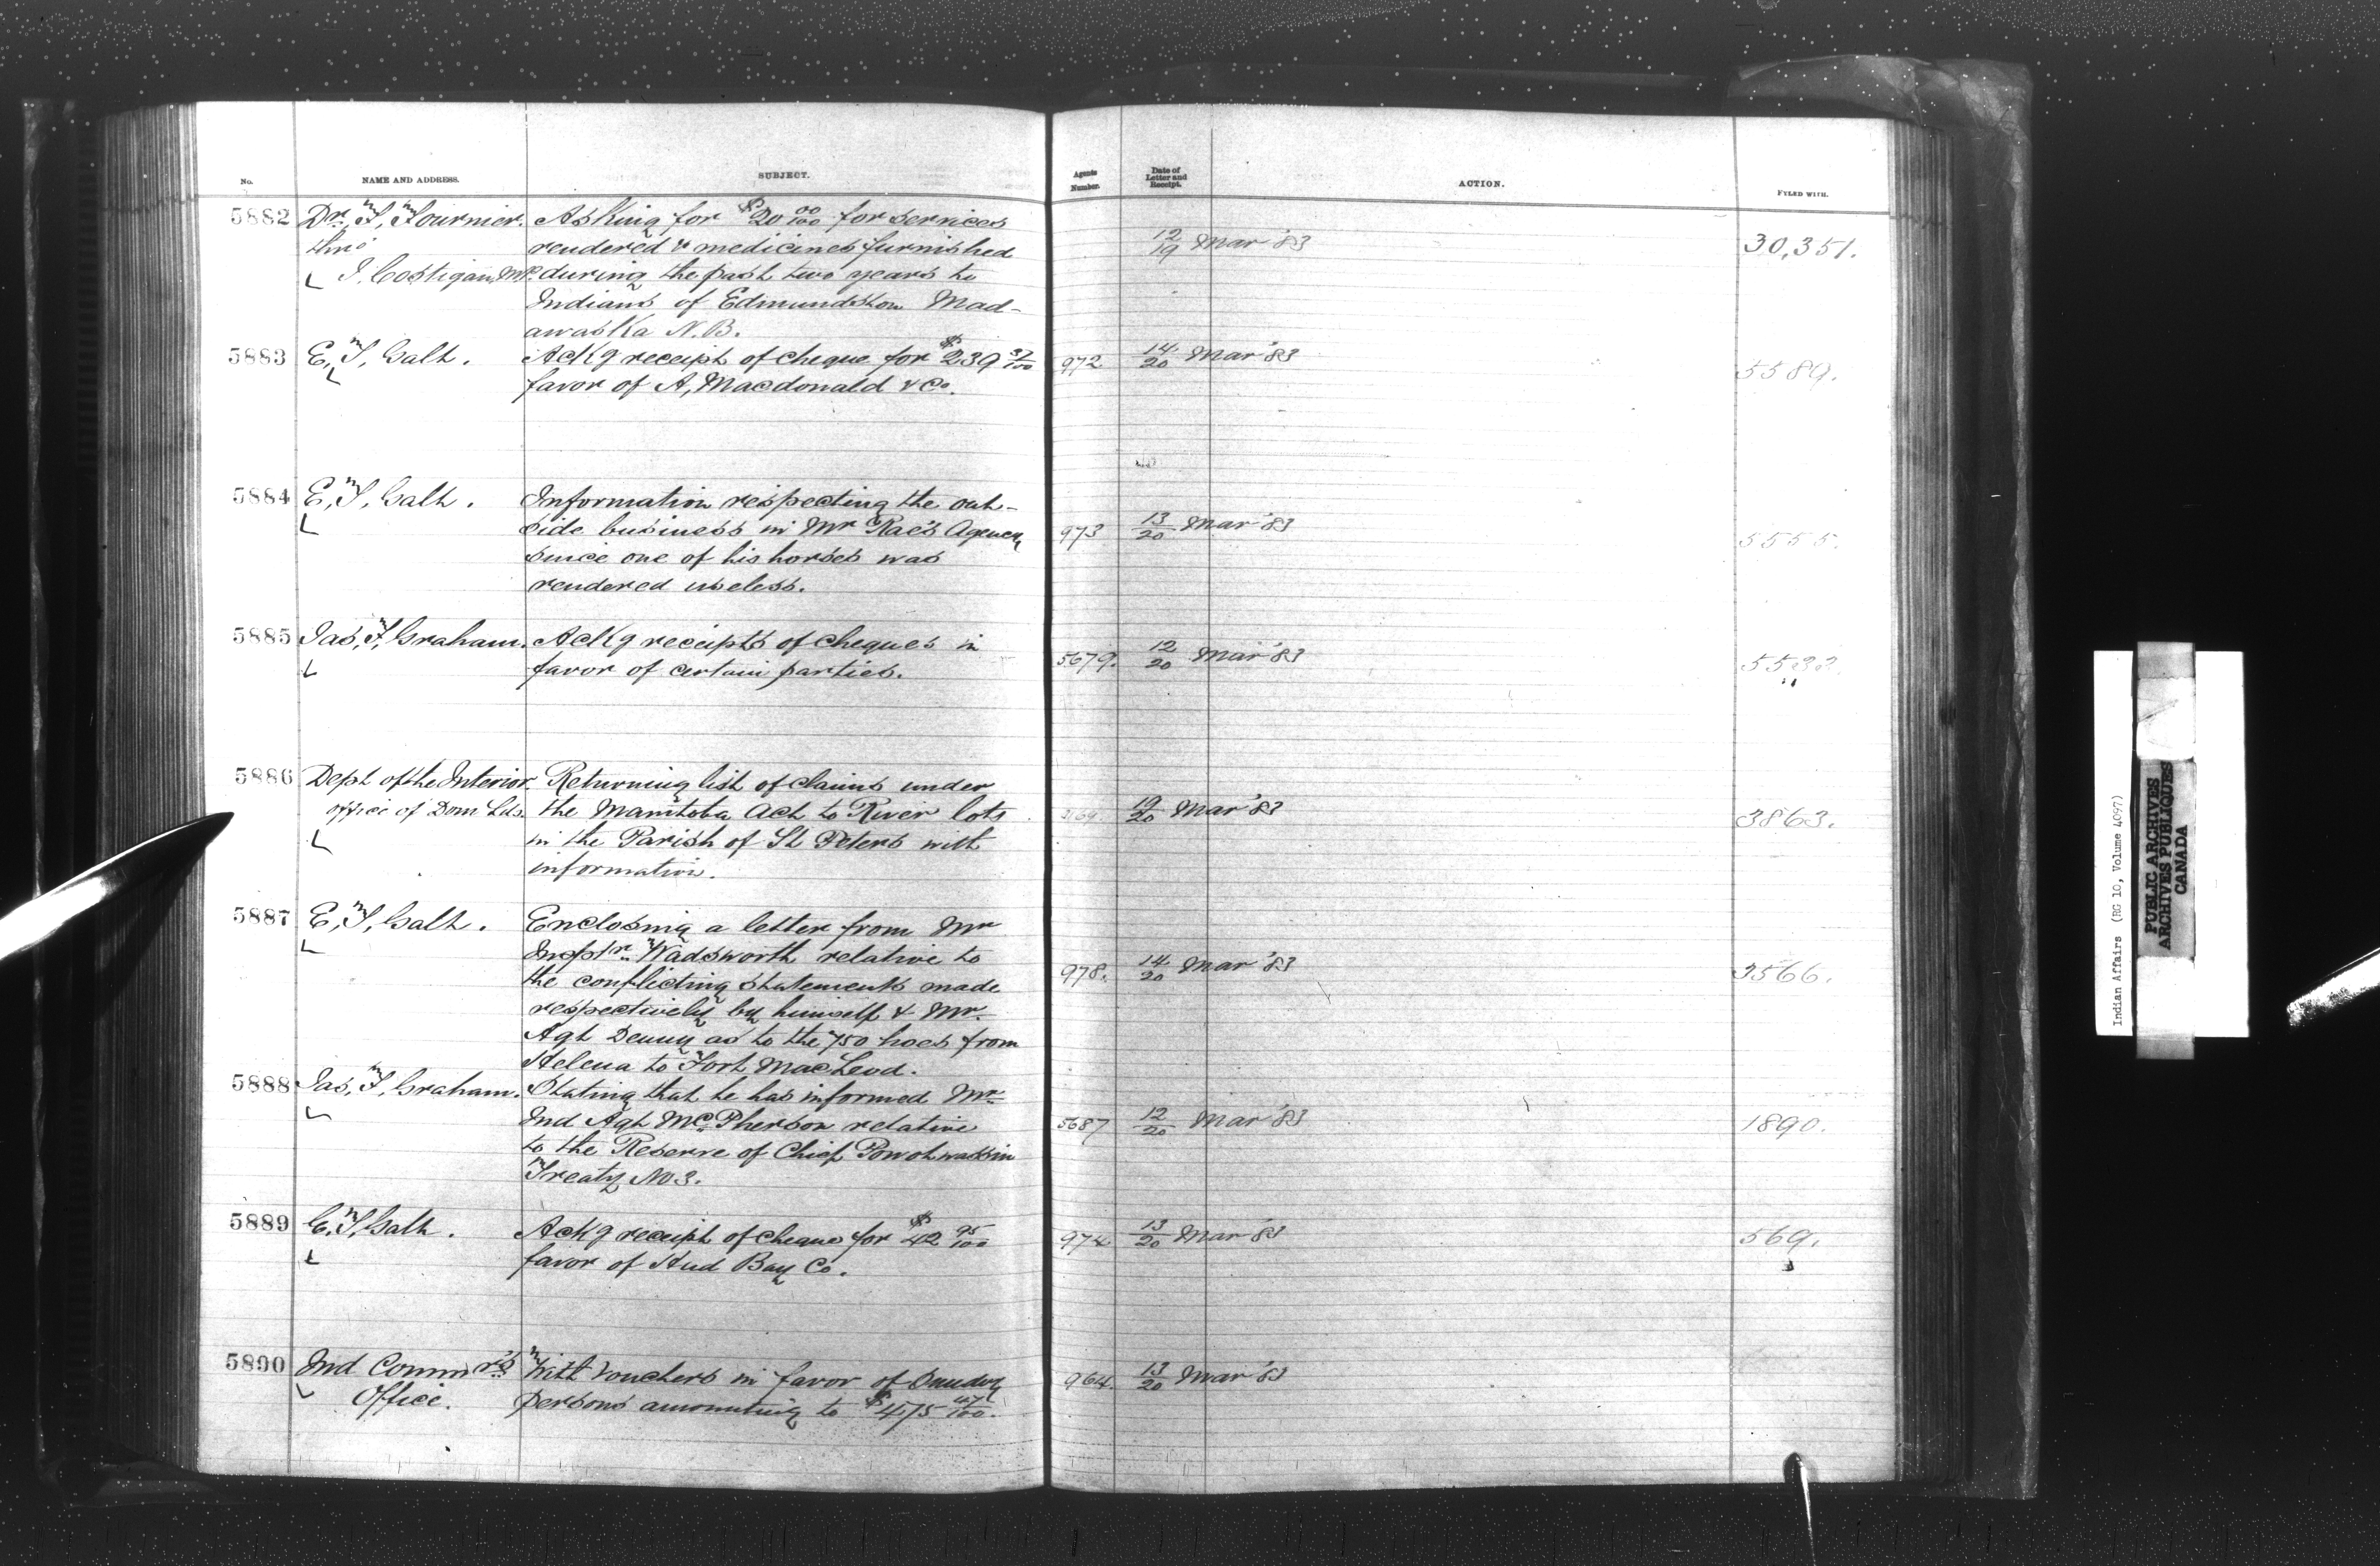 No. NAME AND ADDRESS. SUBJECT. Agents Number. Date of Letter and Receipt. ACTION. FYLED WITH.
5882 Dr. T, Fournier. Asking for $20 00/100 for services
thro' rendered & medicines furnished 12/19 Mar '83 30,351.
J. Costigan, MP. during the past two years to
Indians of Edmundston Mad-
awaska N.B.
5883 E, T, Galt. Ackg receipt of cheque for $239 37/100 972 14/20 Mar '83 5589.
favor of A, Macdonald & Co.
5884 E, T, Galt. Information respecting the out-
side business in Mr Rae's Agency 973 13/20 Mar '83 5555.
since one of his horses was
rendered useless.
5885 Jas, F, Graham. Ackg receipts of cheques in 5679. 12/20 Mar '83
favor of certain parties.
5886 Dept of the Interior. Returning list of claims under
office of Dom Lds. the Manitoba Act to River lots 19/20 Mar '83 3863.
in the Parish of St Peters with
information.
5887 E, T, Galt. Enclosing a letter from Mr
Inspr. Wadsworth relative to
the conflicting statements made 978. 14/20 Mar '83 3566.
respectively by himself & Mr.
Agt Denny as to the 750 hoes from
Helena to Fort MacLeod.
5888 Jas, F, Graham. Stating that he has informed Mr.
Ind Agt McPherson relative 5687 12/20 Mar '83 1890.
to the Reserve of Chief Powohwassin
Treaty No 3.
5889 E, T, Galt. Ackg receipt of cheque for $42 95/100 974 13/20 Mar '83 569.
favor of Hud Bay Co.
5890 Ind Commrs With vouchers in favor of Sundry 964. 13/20 Mar '83
Office. persons amounting to $475 47/100.
Indian Affairs (RG 10, Volume 4097)
PUBLIC ARCHIVES
ARCHIVES PUBLIQUES
CANADA